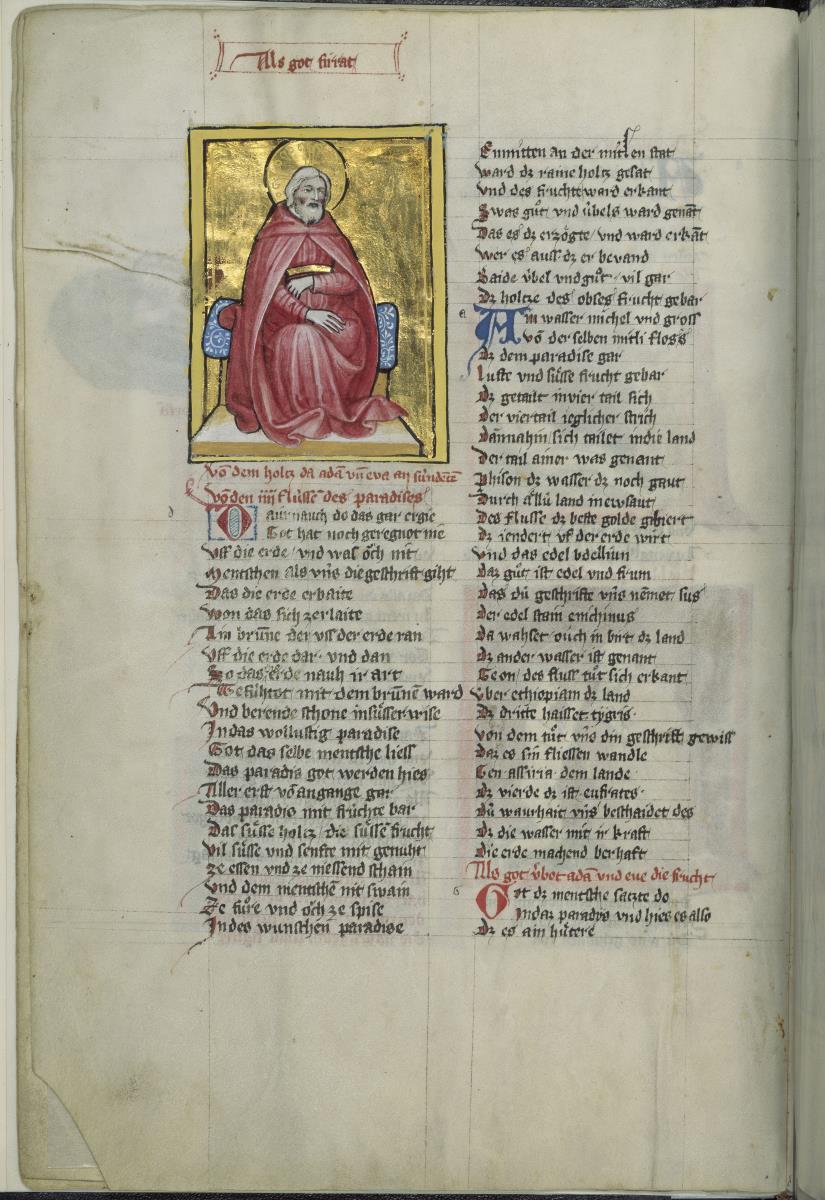 Als got firat
Vō dem holtz da adā vn̄ eva an sūndetē
Vō den iiij flusse des paradises
Darnnauch do das gar ergie
Got hat noch geregnot nie
Vff die erde / vnd was ŏch nit
Mentschen als vns die geschrift giht
Das die erde erbaite
Won das sich zerlaite
Ain brūne der vss der erde ran
Vff die erde dar · vnd dan
So das erde nauh ir art
Gefuhtot mit dem brūnē ward
Vnd berende schone in sůsser wise
In das wollustig paradise
Got das selbe mentsche liess
Das paradis got werden hies
Aller erst vō angange gar
Das paradis mit frúchte bar
Das sůsse holtz / die sůssē frucht
Vil sůsse vnd senfte mit genuht
Ze essen vnd ze niessend scham
Vnd dem mentschē nit swain
Ze fůre vnd ŏch ze spise
In des wunschen paradise
Enmitten an der mitlen stat
Ward dz raine holtz gesat
Vnd des fruchte ward erkant
Swas gůt vnd úbels ward genāt
Das es dz erzŏgte / vnd ward erkāt
Wer es auss dz er bevand
Baide vbel vnd gůt · vil gar
Dz holtze des obses frucht gebar
Ain wasser michel vnd gross
vō der selben mitli floss
Dz dem paradise gar
Luste vnd sůsse frucht gebar
Dz getailt in vier tail sich
Der viertail ieglicher strich
Dannahin sich tailet in die land
Der tail ainer was genant
Phison dz wasser dz noch gaut
Durch allú land in ewsaut
Des flusse dz beste golde gebiert
Dz iendert vf der erde wirt
Vnd das edel bdelliun
Daz gůt ist edel vnd frum
Das dú geschrifte vns nēmet sus
Der edel stain emchinus
Da wahset ouch in birt dz land
Dz ander wasser ist genant
Geon / des fluss tůt sich erkant
Vber ethiopiam dz land
Dz dritte haisset tygris ·
Von dem tůt vns din geschrift gewiss
Daz es sin fliessen wandle
Gen assiria dem lande
Dz vierde dz ist eufrates ·
Dú waurhait vns beschaidet des
Dz die wasser mit ir kraft
Die erde machend berhaft
Als got v̄bot adā vnd eue die frucht
Got dz mentsche satzte do
In daz paradys vnd hies es also
Dz es ain hůtere